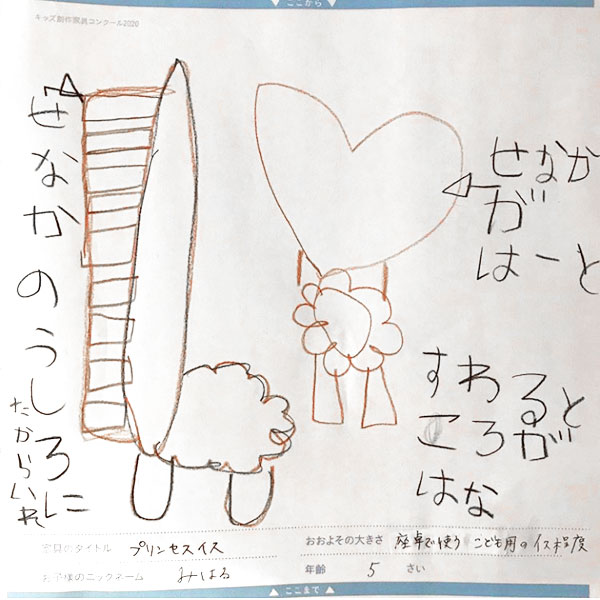 ここから
キッズ創作家具コンクール2020
せなかのうしろに
たからいれ
せなか
が
はーと
すわると
ころが
はな
家具のタイトル プリンセスイス
おおよその大きさ 座卓で使う こども用のイス程度
お子様のニックネーム みはる
年齢 5 さい
ここまで